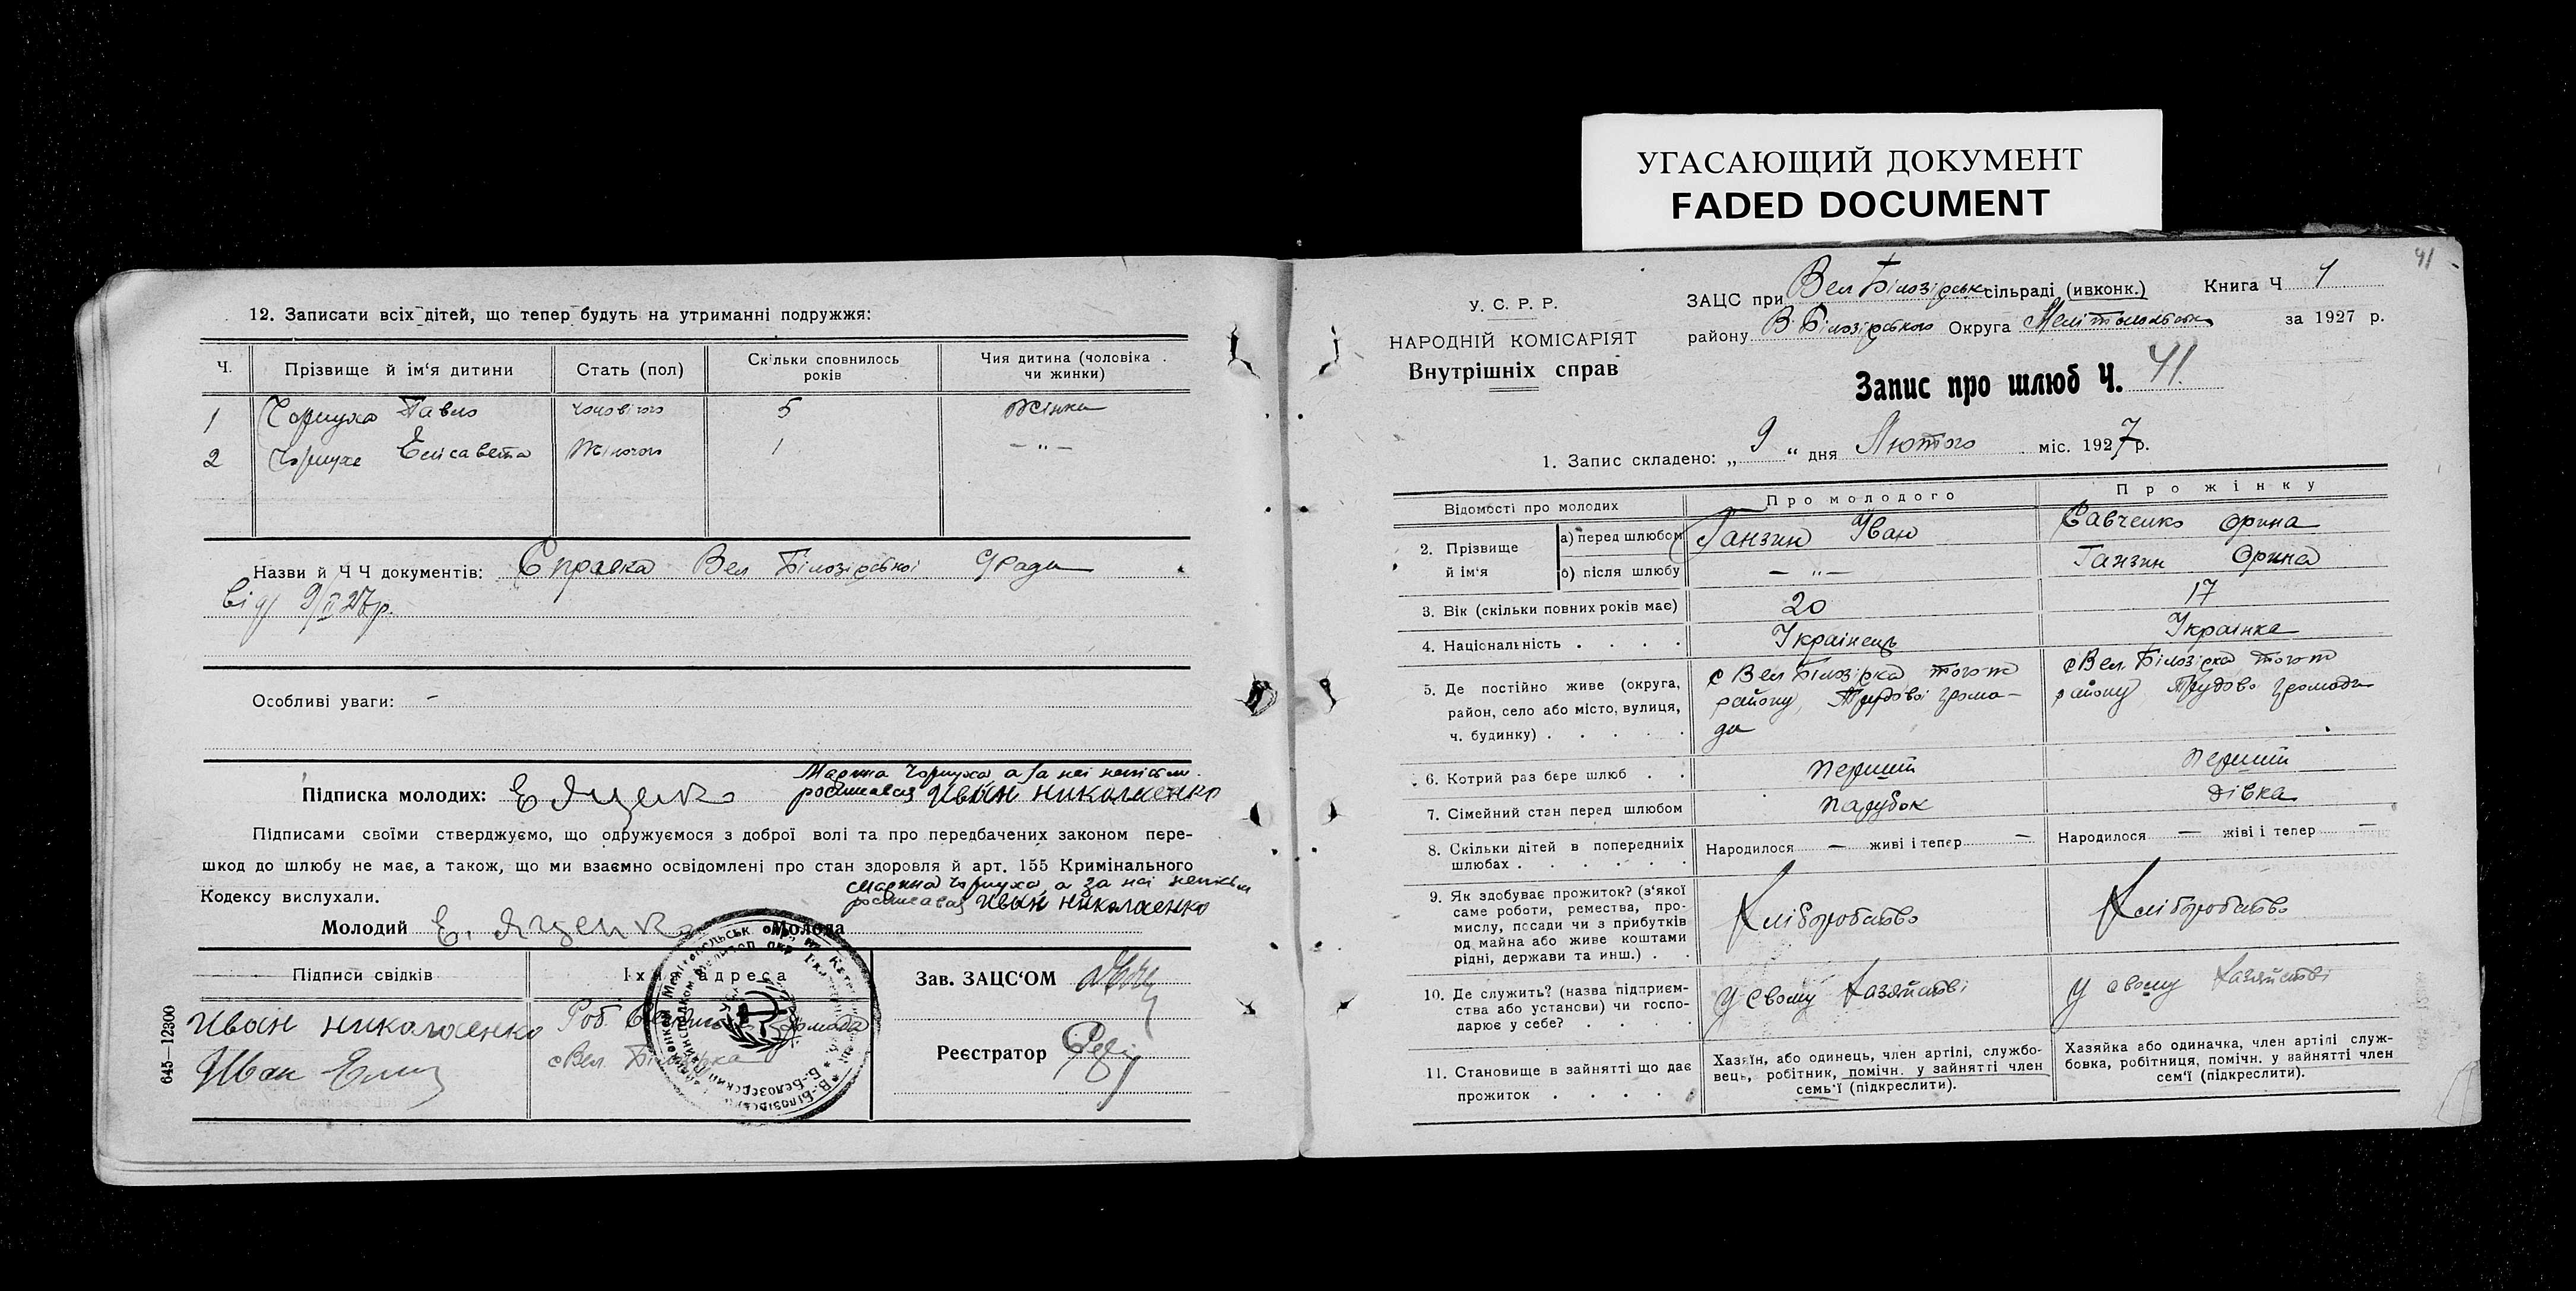 УГАСАЮЩИЙ ДОКУМЕНТ
FADED DOCUMENT
12. Записати всіх дітей, що тепер будуть на утриманні подружжя:
Ч. Прізвище й ім'я дитини Стать (пол) Скільки сповнилось років Чия дитина (чоловіка чи жинки)
1 Чорнуха Павло чоловічого 5 Жінки
2 Чорнуха Єлісавета Жіночого 1 — „ —
Назви й Ч Ч документів: Справка Вел Білозірської С/Ради
від 9/II 27р.
Особливі уваги: -
Марина Чорнуха, а за неі неписьм.
Підписка молодих: Е Яценко росписався Иван Николаенко
Підписами своїми стверджуємо, що одружуємося з доброї волі та про передбачених законом пере-
шкод до шлюбу не має, а також, що ми взаємно освідомлені про стан здоровля й арт. 155 Кримінального
Кодексу вислухали.
Марина Чорнуха, а за неі неписьм
росписався Иван Николаенко
Молодий Е. Яценко Молода
Підписи свідків Їхня адреса
Иван Николаенко Роб. Громада
Иван с Вел. Білозірка
Зав. ЗАЦС'ОМ
Реєстратор
645—12300
41
У. С. Р. Р.
НАРОДНІЙ КОМІСАРІЯТ
Внутрішніх справ
ЗАЦС при Вел Білозірськ сільраді (ивконк.) Книга Ч 1
району В. Білозірського Округа Мелітопольськ за 1927 р.
Запис про шлюб Ч. 41.
1. Запис складено: „ 9 “ дня Лютого міс. 1927 р.
Відомості про молодих Про молодого Про жінку
2. Прізвище й ім'я а) перед шлюбом Ганзин Іван Савченко Орина
б) після шлюбу — „ — Ганзин Орина
3. Вік (скільки повних років має) 20 17
4. Національність . . . . Українець Українка
5. Де постійно живе (округа, район, село або місто, вулиця, ч. будинку) . . . . .
с Вел Білозірка того ж району, Трудової грома-
ди
с Вел. Білозірка того ж
району Трудово громади
6. Котрий раз бере шлюб . . Перший Перший
7. Сімейний стан перед шлюбом Парубок Дівка
8. Скільки дітей в попередниіх шлюбах . . . . . . .
Народилося — живі і тепер —
Народилося — живі і тепер —
9. Як здобуває прожиток? (з'якої
саме роботи, ремества, про-
мислу, посади чи з прибутків
од майна або живе коштами
рідні, держави та инш.) . .
Хліборобство Хліборобство
10. Де служить? (назва підприєм-
ства або установи) чи госпо-
дарює у себе? . . . .
У Свому Хазяйстві У свому Хазяйстві
11. Становище в зайнятті що дає
прожиток . . . . .
Хазяїн, або одинець, член артілі, службо-
вець, робітник, помічн. у зайнятті член
семь'ї (підкреслити).
Хазяйка або одиначка, член артілі служ-
бовка, робітниця, помічн. у зайнятті член
сем'ї (підкреслити).